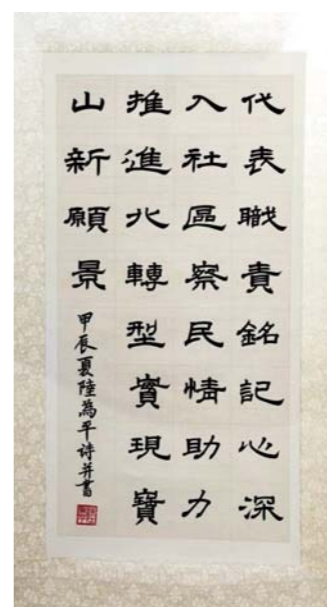 代表職責銘記心深
入社區察民情助力
推進北轉型實現寶
山新願景
甲辰夏陸為平詩并書